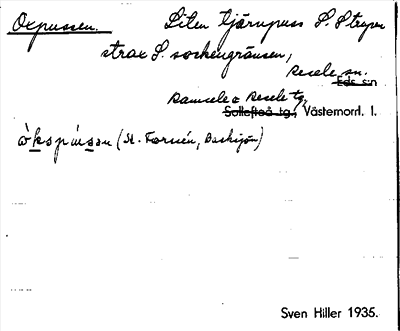 Oxpussen. Liten tjärnpuss S. Strupen
strax S. sockengränsen,
Resele sn.
Eds s:n
Ramsele o Resele tg.
Sollefteå tg., Västernorrl. l.
(St. Forsén, Backsjön)
Sven Hiller 1935.